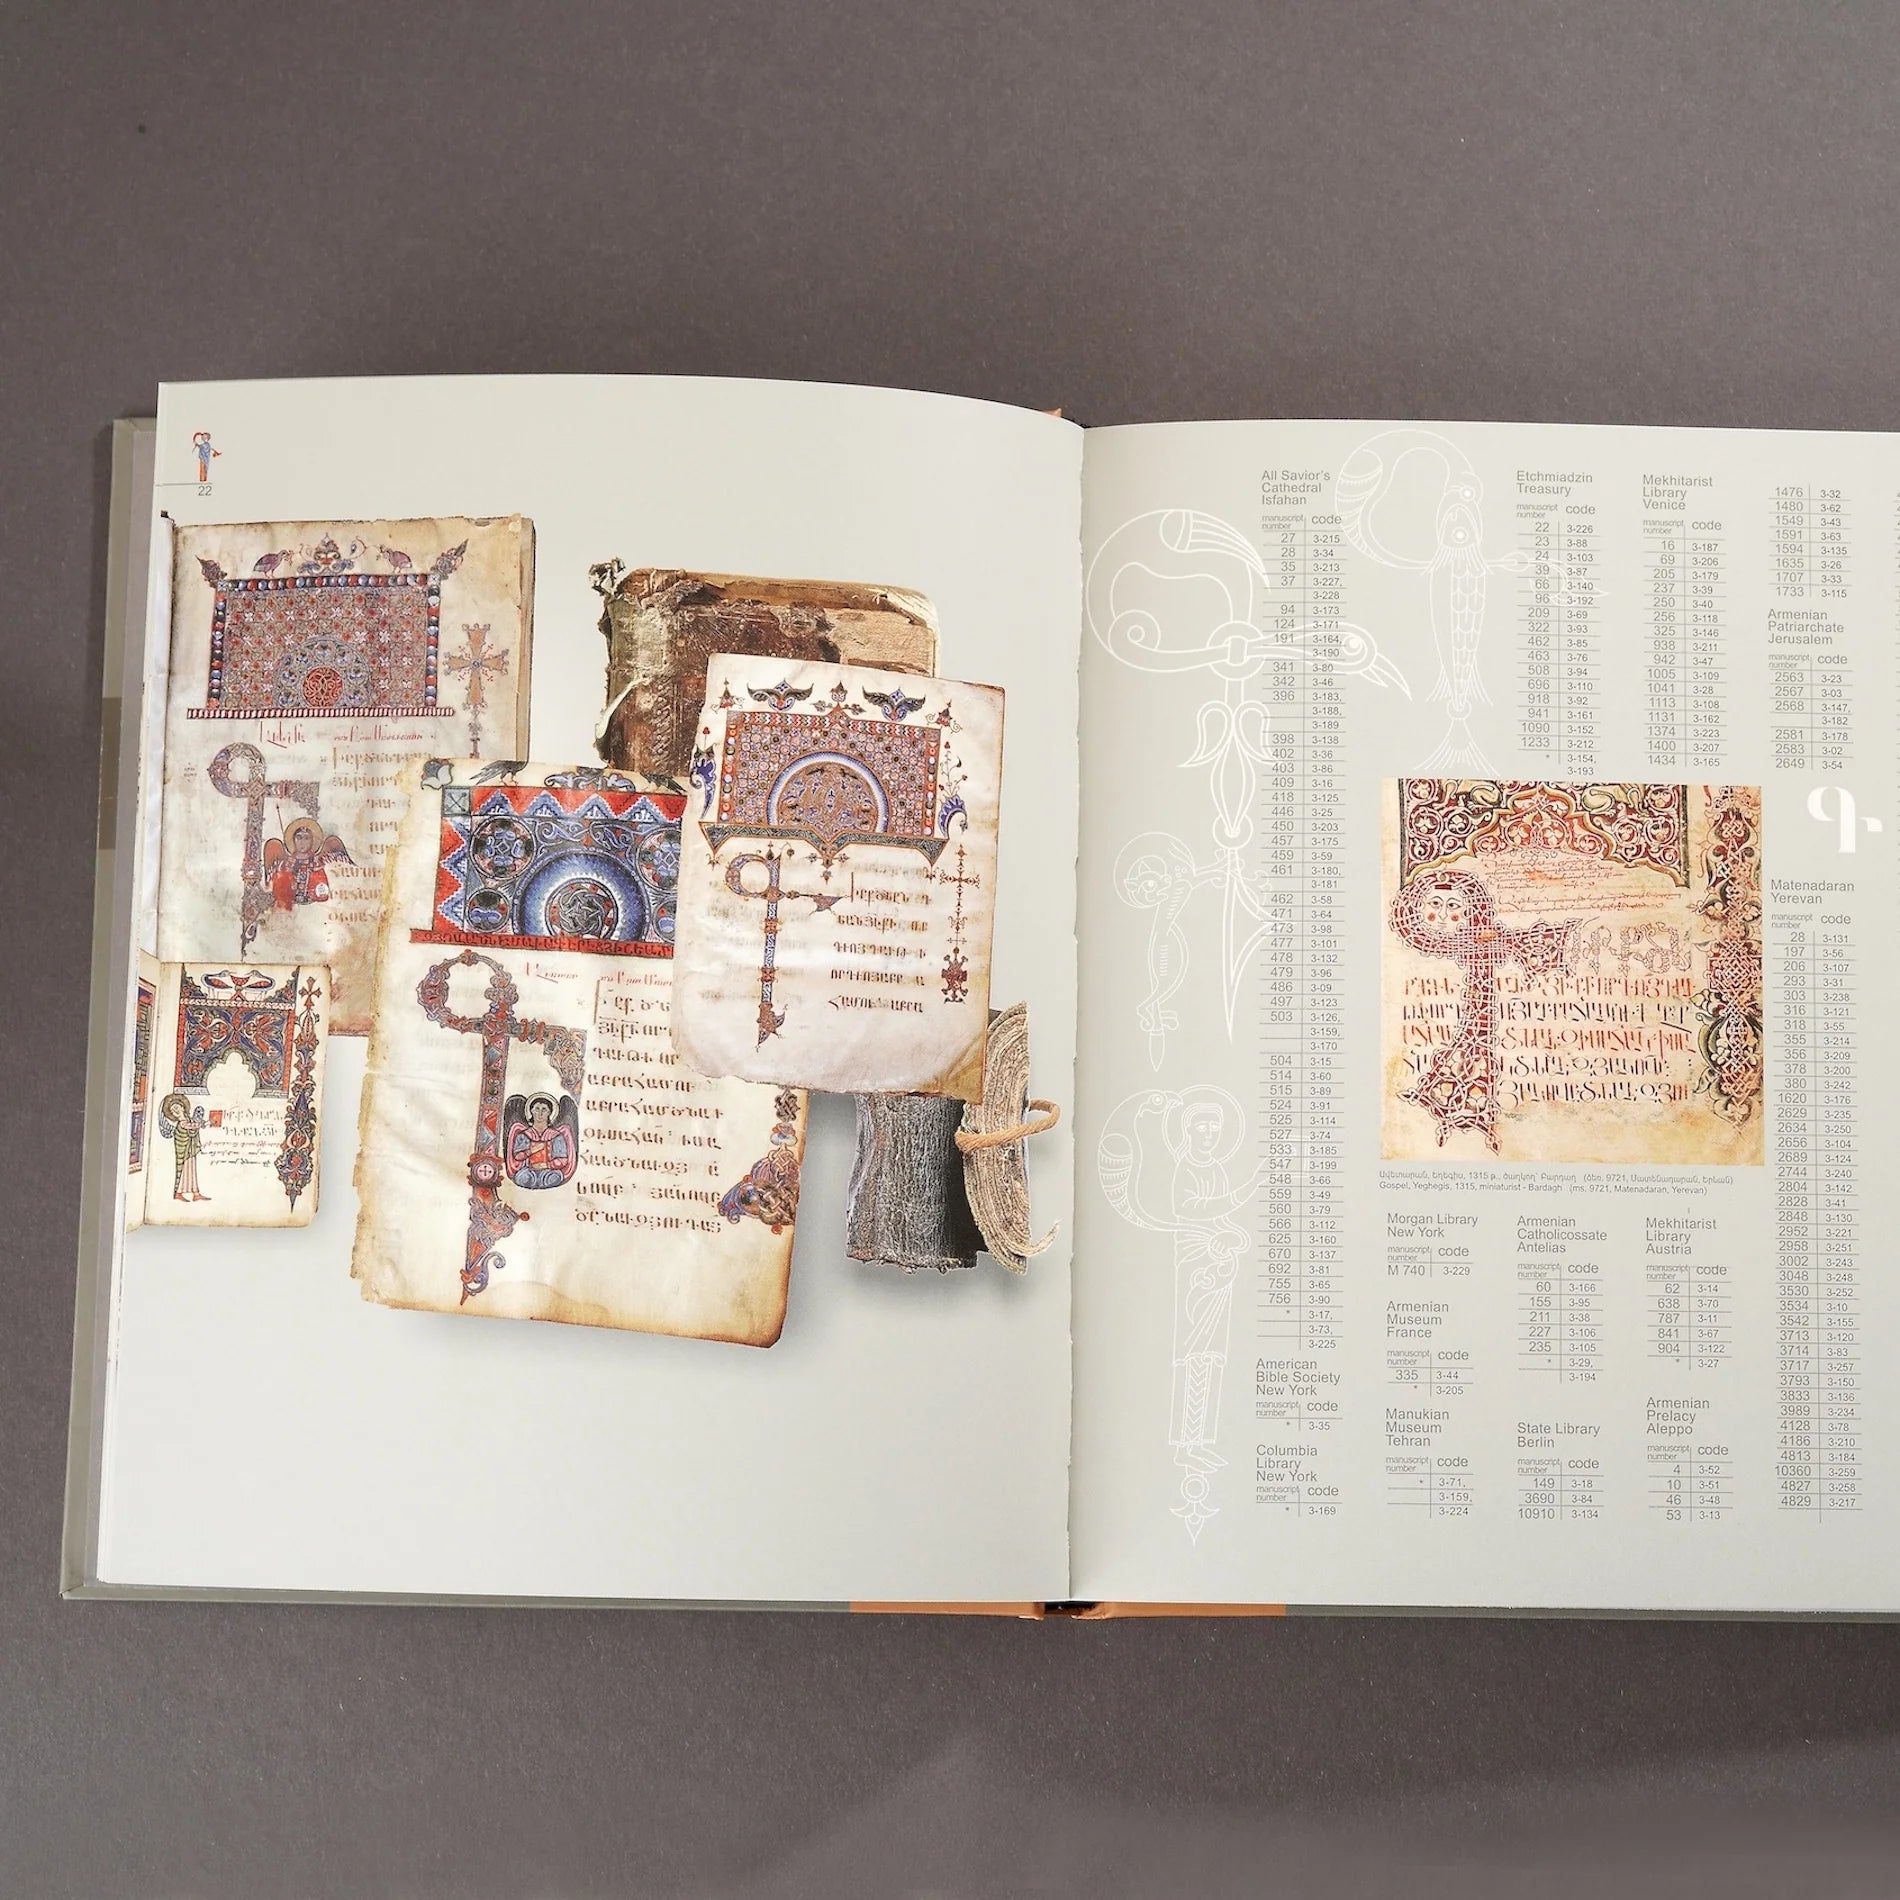 22
All Savior's
Cathedral
Isfahan
manuscript number | code
27 3-215
28 3-34
35 3-213
37 3-227,
3-228
94 3-173
124 3-171
191 3-164,
3-190
341 3-80
342 3-46
396 3-183,
3-188,
3-189
398 3-138
402 3-36
403 3-86
409 3-16
418 3-125
446 3-25
450 3-203
457 3-175
459 3-59
461 3-180,
3-181
462 3-58
471 3-64
473 3-98
477 3-101
478 3-132
479 3-96
486 3-09
497 3-123
503 3-126,
3-159,
3-170
504 3-15
514 3-60
515 3-89
524 3-91
525 3-114
527 3-74
533 3-185
547 3-199
548 3-66
559 3-49
560 3-79
566 3-112
625 3-160
670 3-137
692 3-81
755 3-65
756 3-90
* 3-17,
3-73,
3-225
American
Bible Society
New York
manuscript number | code
* 3-35
Columbia
Library
New York
manuscript number | code
* 3-169
Etchmiadzin
Treasury
manuscript number | code
22 3-226
23 3-88
24 3-103
39 3-87
66 3-140
96 3-192
209 3-69
322 3-93
462 3-85
463 3-76
508 3-94
696 3-110
918 3-92
941 3-161
1090 3-152
1233 3-212
* 3-154,
3-193
Mekhitarist
Library
Venice
manuscript number | code
16 3-187
69 3-206
205 3-179
237 3-39
250 3-40
256 3-118
325 3-146
938 3-211
942 3-47
1005 3-109
1041 3-28
1113 3-108
1131 3-162
1374 3-223
1400 3-207
1434 3-165
1476 3-32
1480 3-62
1549 3-43
1591 3-63
1594 3-135
1635 3-26
1707 3-33
1733 3-115
Armenian
Patriarchate
Jerusalem
manuscript number | code
2563 3-23
2567 3-03
2568 3-147,
3-182
2581 3-178
2583 3-02
2649 3-54
Գ
Ավետարան, Եղեգիս, 1315 թ., ծաղկող՝ Բարդաղ (ձեռ. 9721, Մատենադարան, Երևան)
Gospel, Yeghegis, 1315, miniaturist - Bardagh (ms. 9721, Matenadaran, Yerevan)
Morgan Library
New York
manuscript number | code
M 740 3-229
Armenian
Museum
France
manuscript number | code
335 3-44
* 3-205
Manukian
Museum
Tehran
manuscript number | code
* 3-71,
3-159,
3-224
Armenian
Catholicossate
Antelias
manuscript number | code
60 3-166
155 3-95
211 3-38
227 3-106
235 3-105
* 3-29,
3-194
State Library
Berlin
manuscript number | code
149 3-18
3690 3-84
10910 3-134
Mekhitarist
Library
Austria
manuscript number | code
62 3-14
638 3-70
787 3-11
841 3-67
904 3-122
* 3-27
Armenian
Prelacy
Aleppo
manuscript number | code
4 3-52
10 3-51
46 3-48
53 3-13
Matenadaran
Yerevan
manuscript number | code
28 3-131
197 3-56
206 3-107
293 3-31
303 3-238
316 3-121
318 3-55
355 3-214
356 3-209
378 3-200
380 3-242
1620 3-176
2629 3-235
2634 3-250
2656 3-104
2689 3-124
2744 3-240
2804 3-142
2828 3-41
2848 3-130
2952 3-221
2958 3-251
3002 3-243
3048 3-248
3530 3-252
3534 3-10
3542 3-155
3713 3-120
3714 3-83
3717 3-257
3793 3-150
3833 3-136
3989 3-234
4128 3-78
4186 3-210
4813 3-184
10360 3-259
4827 3-258
4829 3-217